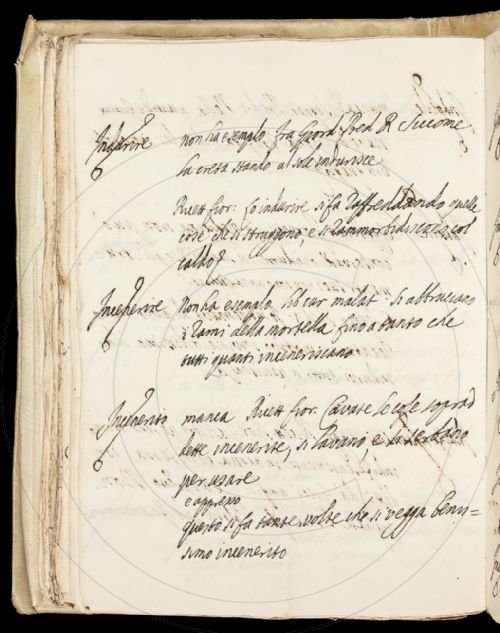 Indurire non ha esempio fra Giord. Pred. R. Siccome
la creta stando al sole indurisce
Ricett fior: Lo indurire si fa raffreddando quelle
cose che si struggono, e si rammorbidiscono col
caldo
Incenerire Non ha esempio lib cur malat. Si abbruciano
i rami della mortella fino a tanto che
tutti quanti inceneriscano
Incenerito manca Ricett fior. Cavate le cose soprad
dette incenerite, si lavano, e si serbano
per usare
e appresso
questo si fa tante volte che si vegga benis=
simo incenerito